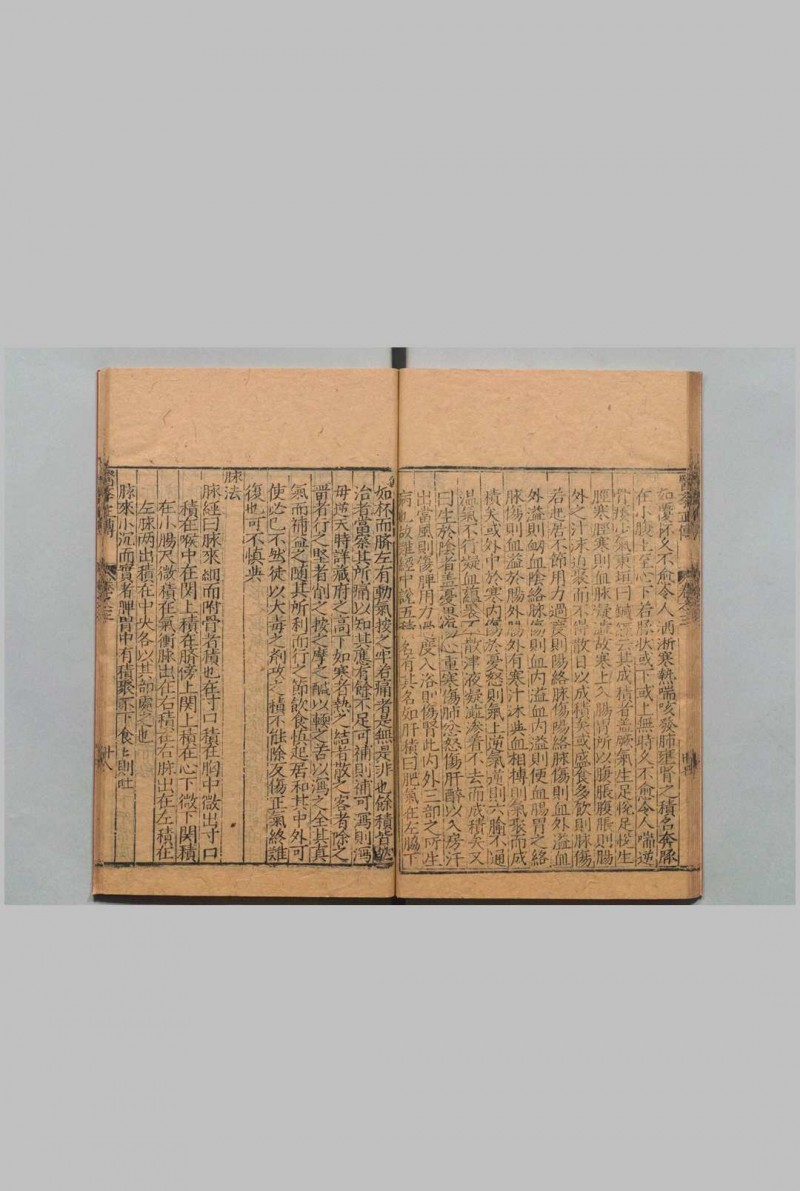 如覆杯久不愈令人洒淅寒熱喘咳發肺壅腎之積名奔豚
在小腹上至心下若豚狀或下或上無時久不愈令人喘逆
骨痿少氣東垣曰 云其成積者蓋厥氣生足悗足悗生
脛寒脛寒則血脉凝澁故寒上入腸胃所以腹脹腹脹則腸
外之汁沫迫聚而不得散日以成積矣或盛食多飲則脉傷
若起居不節用力過度則陽絡脉傷陽絡脉傷則血外溢血
外溢則衂血陰絡脉傷則血内溢血内溢則便血腸胃之絡
脉傷則血溢於腸外腸外有寒汁沫與血相搏則氣聚而成
積矣或外中於寒内傷於憂怒則氣上逆氣逆則六腧不通
温氣不行凝血蘊裹不散津液凝澁滲着不去而成積矣又
曰生於陰者蓋憂思傷心重寒傷肺忿怒傷肝醉以入房汗
出當風則傷脾用力過度入浴則傷腎此内外三部之所生
病也故難經中說五積各有其名如肝積曰肥氣在左脇下
如杯而臍左有動氣按之牢若痛者是無是非也餘積皆然
治者當察其所痛以知其應有餘不足可補則補可瀉則瀉
毋逆天時詳藏府之高下如寒者熱之結者散之客者除之
留者行之堅者削之按之摩之鹹以軟之苦以瀉之全其真
氣而補益之隨其所利而行之節飲食慎起居和其中外可
使必已不然徒以大毒之劑攻之積不能除反傷正氣終難
復也可不慎與
脉法
脉經曰脉來細而附骨者積也在寸口積在胸中微出寸口
積在喉中在関上積在臍傍上関上積在心下微下関積
在小腸尺微積在氣衝脉出在右積在右脉出在左積在
左脉两出積在中央各以其部處之也
脉來小沉而實者脾胃中有積聚不下食食則吐
醫學正傳
卷之三
十八